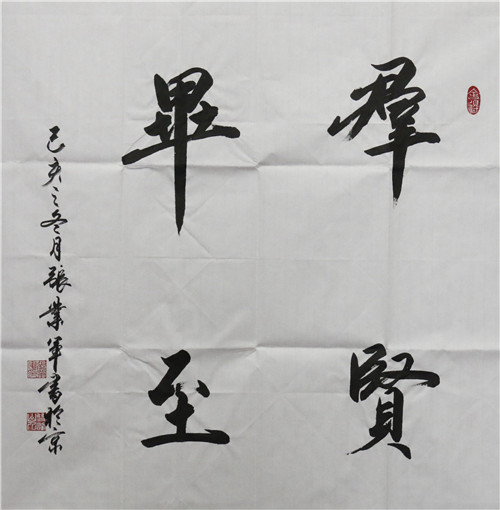 羣賢
畢至
己亥之冬月張業軍書於京